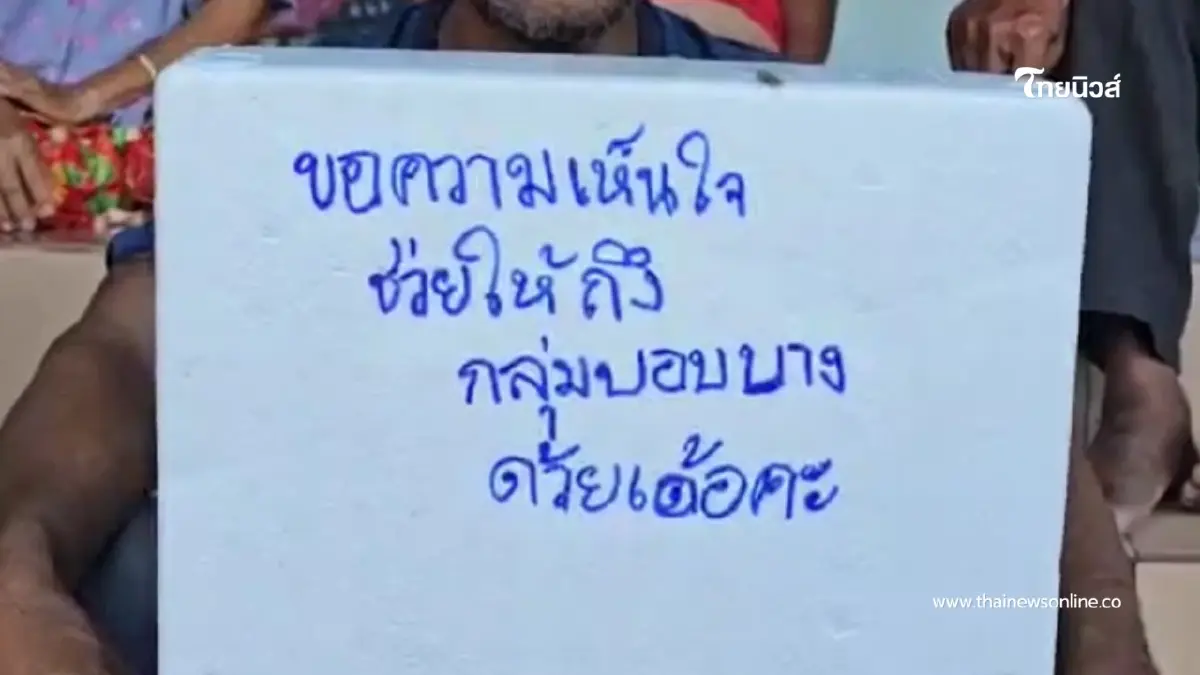 ไทยนิวส์
ขอความเห็นใจ
ช่วยให้ถึง
กลุ่มบอบบาง
ด้วยเด้อคะ
www.thainewsonline.co